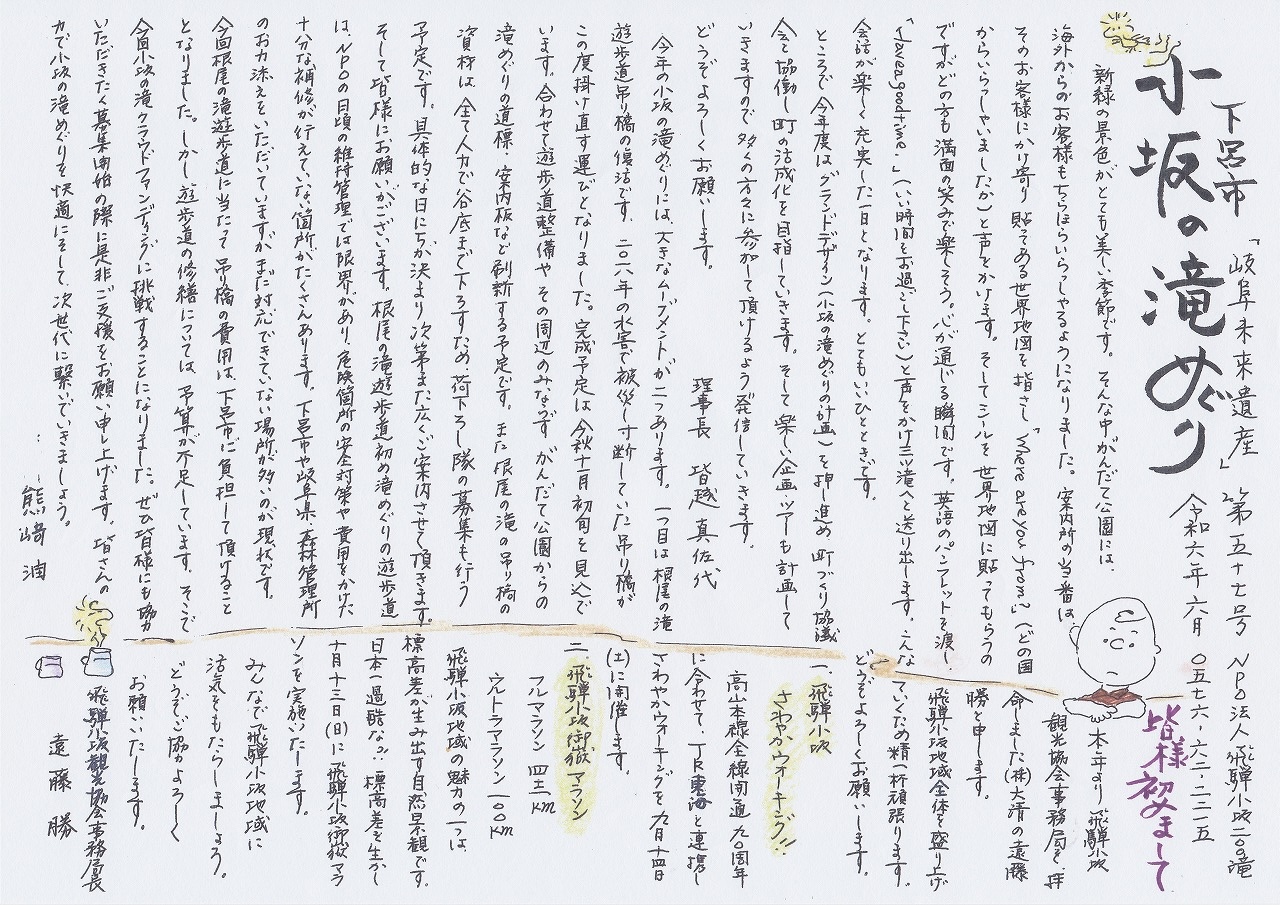 下呂市
小坂の滝めぐり
「岐阜未来遺産」
第五十七号 NPO法人飛騨小坂二〇〇滝
令和六年六月 〇五七六-六二-二二一五
新緑の景色がとても美しい季節です。そんな中がんだて公園には、
海外からのお客様もちらほらいらっしゃるようになりました。案内所の当番は、
そのお客様にかけ寄り貼ってある世界地図を指さし「Where are you from?」(どの国
からいらっしゃいましたか)と声をかけます。そしてシールを世界地図に貼ってもらうの
ですがどの方も満面の笑みで楽しそう。心が通じる瞬間です。英語のパンフレットを渡し、
「Have a good time.」(いい時間をお過ごし下さい)と声をかけ三ツ滝へと送り出します。こんな
会話が楽しく充実した一日となります。とてもいいひとときです。
ところで今年度はグランドデザイン(小坂の滝めぐりの計画)を押し進め町づくり協議
会と協働し町の活成化を目指していきます。そして楽しい企画ツアーも計画して
いきますので多くの方々に参加して頂けるよう発信していきます。
どうぞよろしくお願いします。
理事長 皆越真佐代
今年の小坂の滝めぐりには、大きなムーブメントが二つあります。一つ目は根尾の滝
遊歩道吊り橋の復活です。二〇一八年の水害で被災し寸断していた吊り橋が
この度掛け直す運びとなりました。完成予定は今秋十一月初旬を見込んで
います。合わせて遊歩道整備やその周辺のみならず、がんだて公園からの
滝めぐりの道標、案内板なども刷新する予定です。また根尾の滝の吊り橋の
資材は、全て人力で谷底まで下ろすため荷下ろし隊の募集も行う
予定です。具体的な日にちが決まり次第また広くご案内させて頂きます。
そして皆様にお願いがございます。根尾の滝遊歩道初め滝めぐりの遊歩道
は、NPOの日頃の維持管理では限界があり、危険箇所の安全対策や費用をかけた
十分な補修が行えていない箇所がたくさんあります。下呂市や岐阜県、森林管理所
のお力添えをいただいていますがまだ対応できていない場所が多いのが現状です。
今回根尾の滝遊歩道に当たって吊り橋の費用は、下呂市に負担して頂けること
となりました。しかし遊歩道の修繕については、予算が不足しています。そこで
今回小坂の滝クラウドファンディングに挑戦することになりました。ぜひ皆様にも協力
いただきたく募集開始の際に是非ご支援をお願い申し上げます。皆さんの
力で小坂の滝めぐりを快適にそして、次世代に繋いでいきましょう。
熊﨑 潤
皆様初めまして
本年より飛騨小坂
観光協会事務局を、拝
命しました(株)大清の遠藤
勝と申します。
飛騨小坂地域全体を盛り上げ
ていくため精一杯頑張ります。
どうぞよろしくお願いします。
一、飛騨小坂
さわやかウォーキング!!
高山本線全線開通九〇周年
に合わせて、JR東海と連携し
さわやかウォーキングを九月十四日
(土)に開催します。
二、飛騨小坂御嶽マラソン
フルマラソン 四二km
ウルトラマラソン 一〇〇km
飛騨小坂地域の魅力の一つは、
標高差が生み出す自然景観です。
日本一過酷な?!標高差を生かし
十月十三日(日)に飛騨小坂御嶽マラ
ソンを実施いたします。
みんなで飛騨小坂地域に
活気をもたらしましょう。
どうぞご協力よろしく
お願いいたします。
飛騨小坂観光協会事務局長
遠藤 勝